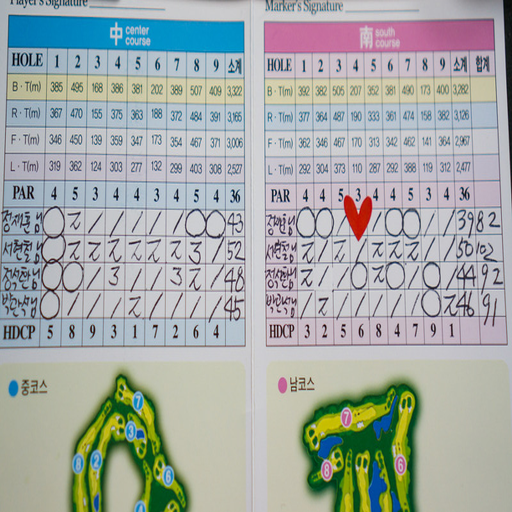 Player's Signature
中 center course
HOLE 1 2 3 4 5 6 7 8 9 소계
B · T(m) 385 495 168 386 381 202 389 507 409 3,322
R · T(m) 367 470 155 375 363 188 372 484 391 3,165
F · T(m) 346 450 139 359 347 173 354 467 371 3,006
L · T(m) 319 362 124 303 277 132 299 403 308 2,527
PAR 4 5 3 4 4 3 4 5 4 36
43
52
48
45
HDCP 5 8 9 3 1 7 2 6 4
중코스
7
3
8 2
6
Marker's Signature
南 south course
HOLE 1 2 3 4 5 6 7 8 9 소계 합계
B · T(m) 392 382 505 207 352 381 490 173 400 3,282
R · T(m) 377 364 487 190 333 361 474 158 382 3,126
F · T(m) 362 346 467 170 313 342 462 141 364 2,967
L · T(m) 292 304 373 110 287 292 388 119 312 2,477
PAR 4 4 5 3 4 4 5 3 4 36
39 82
50 102
44 92
46 91
HDCP 3 2 5 6 4 8 7 9 1
남코스
7
8 6